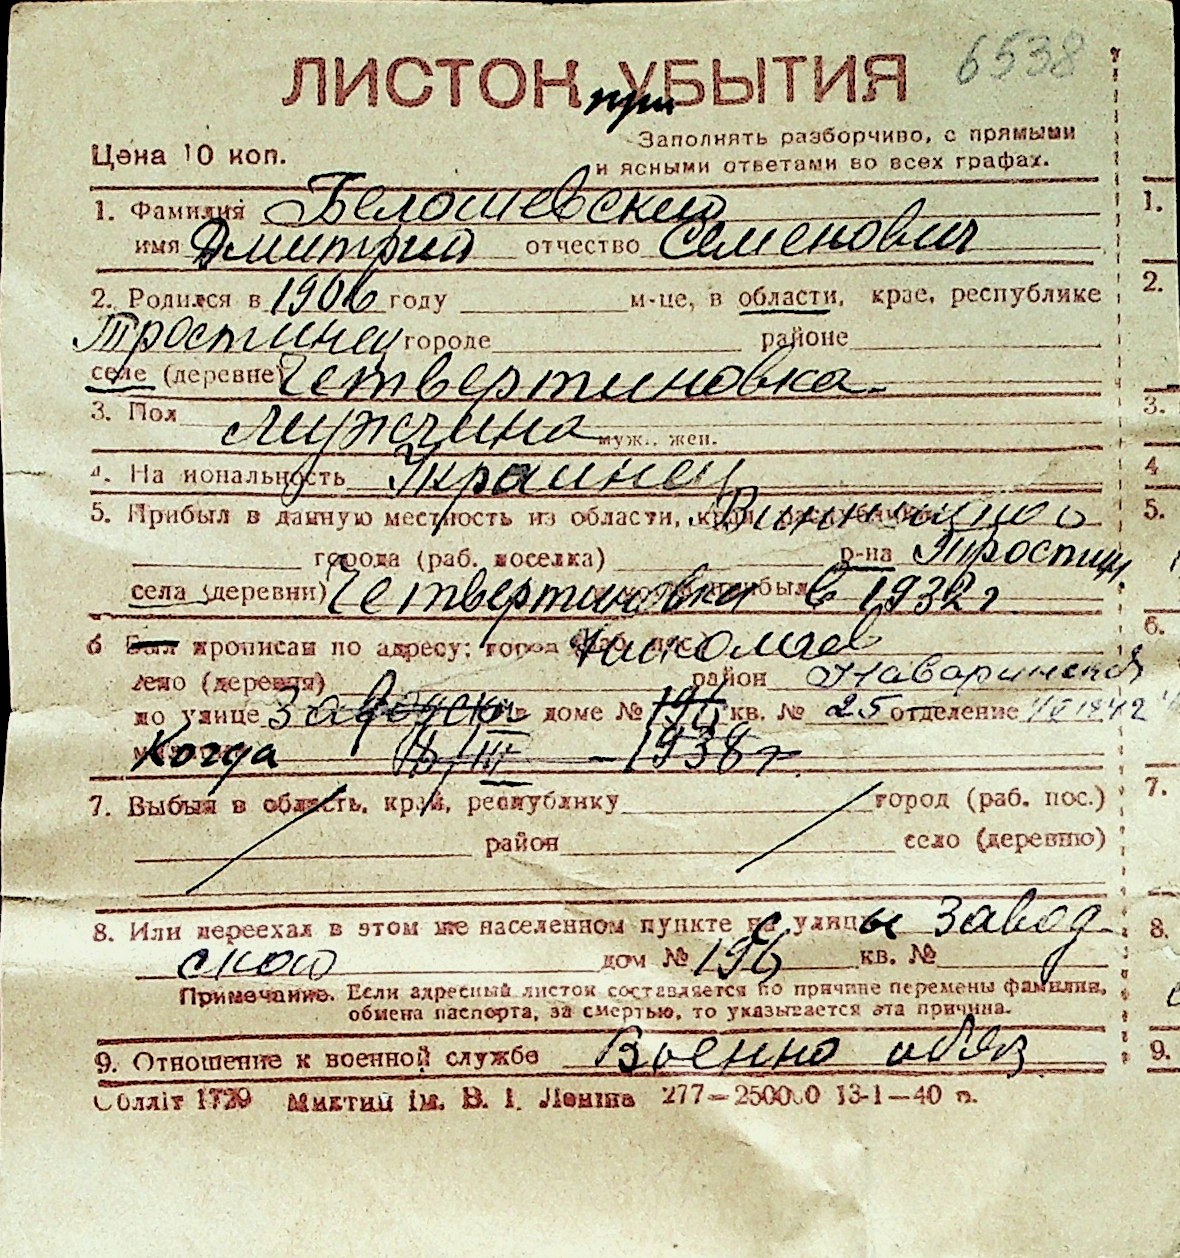 6538
ЛИСТОК УБЫТИЯ
при
Заполнять разборчиво, с прямыми
Цена 10 коп.
и ясными ответами во всех графах.
1. Фамилия Белошевский
имя Дмитрий отчество Семенович
2. Родился в 1906 году м-це, в области, крае, республике
Тростинец городе районе
селе (деревне) Четвертиновка
3. Пол мужчина муж., жен.
4. Национальность Украинец
5. Прибыл в данную местность из области, края, республики Винницкой
города (раб. поселка) р-на Тростин.
села (деревни) Четвертиновка прибыл в 1932 г
6 Был прописан по адресу: город Николаев
село (деревня) район Наваринской
по улице Заводской в доме № 196 кв. № 25 отделение
Когда 18/III 1938 г.
7. Выбыл в область, край, республику город (раб. пос.)
район село (деревню)
8. Или переехал в этом же населенном пункте с улицы Завод
ской дом № 196 кв. №
Примечание. Если адресный листок составляется по причине перемены фамилии,
обмена паспорта, за смертью, то указывается эта причина.
9. Отношение к военной службе Военно обяз
Облліт 1729 Миктип ім. В. І. Леніна 277—250000 13-1—40 п.
1.
2.
3.
4
5.
6.
7.
8.
9.